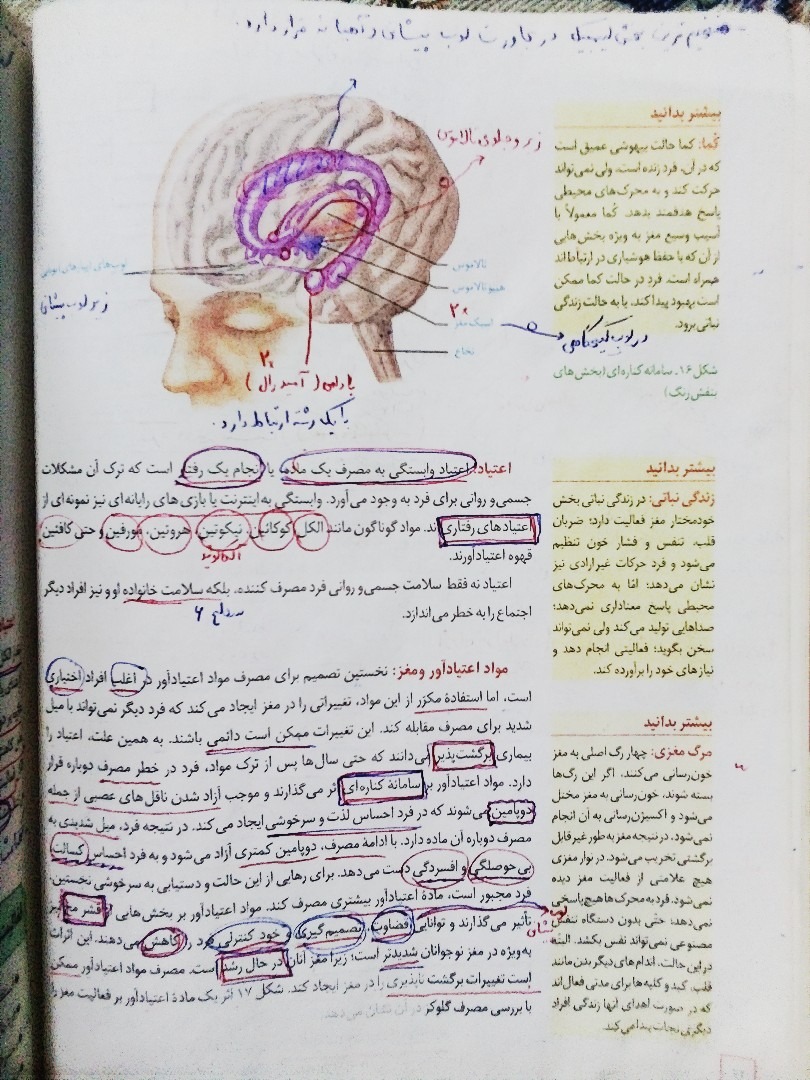 بیشتر بدانید
کُما: کما حالت بیهوشی عمیق است
که در آن، فرد زنده است، ولی نمی‌تواند
حرکت کند و به محرک‌های محیطی
پاسخ هدفمند بدهد. کُما معمولاً با
آسیب وسیع مغز به ویژه بخش‌هایی
از آن که با حفظ هوشیاری در ارتباط‌اند
همراه است. فرد در حالت کما ممکن
است بهبود پیدا کند، یا به حالت زندگی
نباتی برود.
شکل ۱۶ـ سامانه کناره‌ای (بخش‌های
بنفش رنگ)
زیر و جلوی تالاموس
تالاموس
هیپوتالاموس
اسبک مغز
نخاع
زیر لوب پیشانی
در لوب گیجگاهی
بادامی (آمیگدال)
با یک رشته ارتباط دارد.
اعتیاد: اعتیاد وابستگی به مصرف یک ماده یا انجام یک رفتار است که ترک آن مشکلات
جسمی و روانی برای فرد به وجود می‌آورد. وابستگی به اینترنت یا بازی های رایانه‌ای نیز نمونه‌ای از
اعتیادهای رفتاری‌اند. مواد گوناگون مانند الکل، کوکائین، نیکوتین، هروئین، مورفین و حتی کافئین
قهوه اعتیادآورند.
اعتیاد نه فقط سلامت جسمی و روانی فرد مصرف کننده، بلکه سلامت خانواده او و نیز افراد دیگر
اجتماع را به خطر می‌اندازد.
مواد اعتیادآور و مغز: نخستین تصمیم برای مصرف مواد اعتیادآور در اغلب افراد اختیاری
است، اما استفادهٔ مکرّر از این مواد، تغییراتی را در مغز ایجاد می کند که فرد دیگر نمی‌تواند با میل
شدید برای مصرف مقابله کند. این تغییرات ممکن است دائمی باشند. به همین علت، اعتیاد را
بیماری برگشت‌پذیر می‌دانند که حتی سال‌ها پس از ترک مواد، فرد در خطر مصرف دوباره قرار
دارد. مواد اعتیادآور بر سامانهٔ کناره‌ای اثر می‌گذارند و موجب آزاد شدن ناقل های عصبی از جمله
دوپامین می‌شوند که در فرد احساس لذت و سرخوشی ایجاد می کند. در نتیجه فرد، میل شدیدی به
مصرف دوباره آن ماده دارد. با ادامهٔ مصرف، دوپامین کمتری آزاد می‌شود و به فرد احساس کسالت
بی حوصلگی و افسردگی دست می‌دهد. برای رهایی از این حالت و دستیابی به سرخوشی نخستین،
فرد مجبور است، مادهٔ اعتیادآور بیشتری مصرف کند. مواد اعتیادآور بر بخش‌هایی از قشر مخ نیز
تأثیر می‌گذارند و توانایی قضاوت، تصمیم گیری و خود کنترلی فرد را کاهش می‌دهند. این اثرات
به‌ویژه در مغز نوجوانان شدیدتر است؛ زیرا مغز آنان در حال رشد است. مصرف مواد اعتیادآور ممکن
است تغییرات برگشت ناپذیری را در مغز ایجاد کند. شکل ۱۷ اثر یک مادهٔ اعتیادآور بر فعالیت مغز را
با بررسی مصرف گلوکز در آن نشان می‌دهد.
بیشتر بدانید
زندگی نباتی: در زندگی نباتی بخش
خودمختار مغز فعالیت دارد؛ ضربان
قلب، تنفس و فشار خون تنظیم
می‌شود و فرد حرکات غیرارادی نیز
نشان می‌دهد؛ امّا به محرک‌های
محیطی پاسخ معناداری نمی‌دهد؛
صداهایی تولید می‌کند ولی نمی‌تواند
سخن بگوید؛ فعالیتی انجام دهد و
نیازهای خود را برآورده کند.
بیشتر بدانید
مرگ مغزی: چهار رگ اصلی به مغز
خون‌رسانی می‌کنند. اگر این رگ‌ها
بسته شوند، خون‌رسانی به مغز مختل
می‌شود و اکسیژن‌رسانی به آن انجام
نمی‌شود. در نتیجه مغز به طور غیر قابل
برگشتی تخریب می‌شود. در نوار مغزی
هیچ علامتی از فعالیت مغز دیده
نمی‌شود. فرد به محرک‌ها هیچ پاسخی
نمی‌دهد؛ حتّی بدون دستگاه تنفس
مصنوعی نمی‌تواند نفس بکشد. البته
در این حالت، اندام‌های دیگر بدن مانند
قلب، کبد و کلیه‌ها برای مدتی فعال‌اند
که در صورت اهدای آنها زندگی افراد
دیگری نجات پیدا می‌کند.